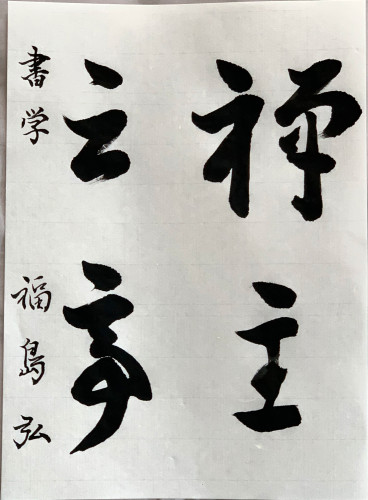 禅主
云亭
書学 福島弘